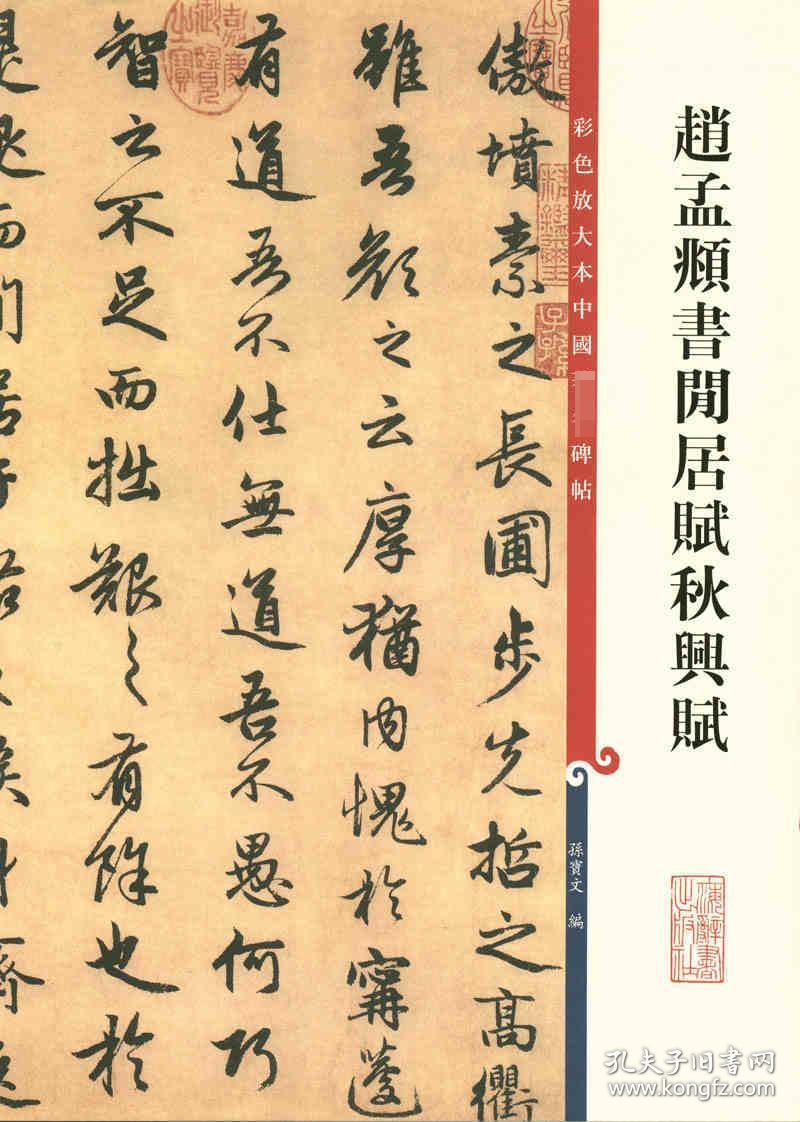 趙孟頫書閒居賦秋興賦
彩色放大本中國
碑帖
孫寶文 編
上海辭書出版社
傲墳素之長圃步先哲之高衢
雖吾顏之云厚猶内愧於甯蘧
有道吾不仕無道吾不愚何巧
智之不足而拙艱之有餘也於
嘉慶御覽之寶
孔夫子旧书网
www.kongfz.com